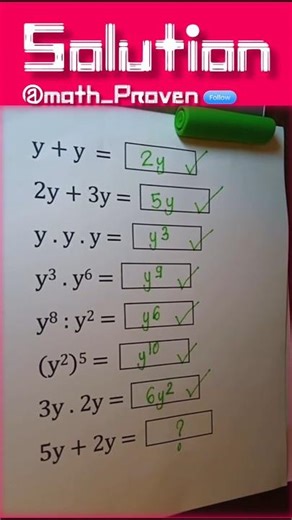 Solution
@math_Proven Follow
y + y = 2y ✓
2y + 3y = 5y ✓
y . y . y = y³ ✓
y³ . y⁶ = y⁹ ✓
y⁸ : y² = y⁶ ✓
(y²)⁵ = y¹⁰ ✓
3y . 2y = 6y² ✓
5y + 2y = ?